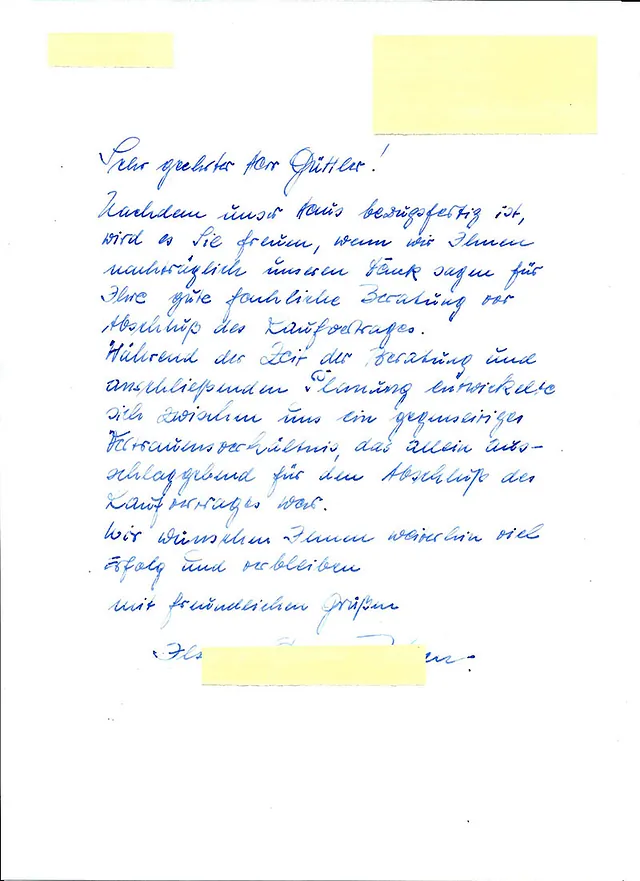 Sehr geehrter Herr Güttler!
Nachdem unser Haus bezugsfertig ist,
wird es Sie freuen, wenn wir Ihnen
nachträglich unseren Dank sagen für
Ihre gute fachliche Beratung vor
Abschluß des Kaufvertrages.
Während der Zeit der Beratung und
anschließenden Planung entwickelte
sich zwischen uns ein gegenseitiges
Vertrauensverhältnis, das allein aus-
schlaggebend für den Abschluß des
Kaufvertrages war.
Wir wünschen Ihnen weiterhin viel
Erfolg und verbleiben
mit freundlichen Grüßen